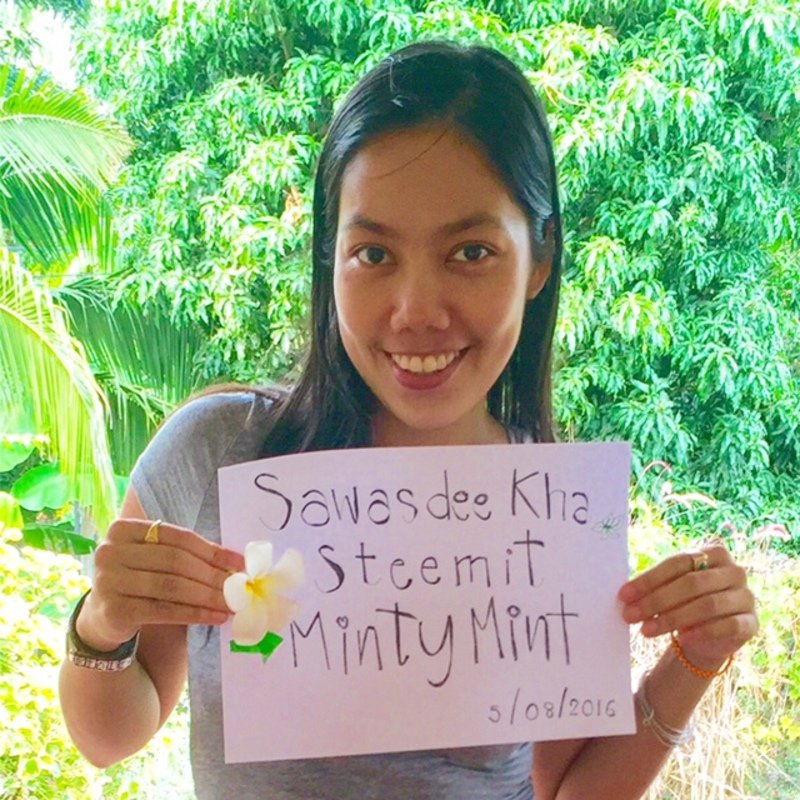 Sawasdee Kha
Steemit
Minty Mint
5/08/2016